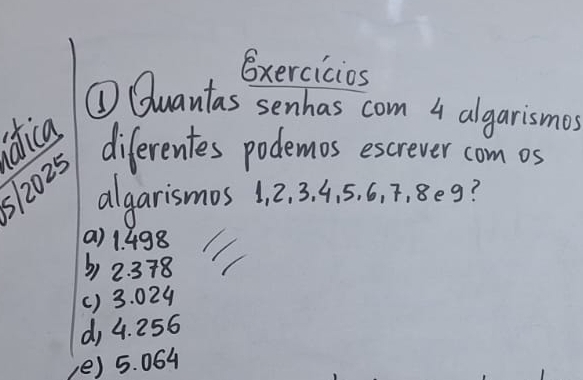 Exercícios
① Quantas senhas com 4 algarismos
diferentes podemos escrever com os
algarismos 1,2,3,4,5,6,7,8 e 9?
a) 1.498
b) 2.378
c) 3.024
d) 4.256
e) 5.064
ática
05/2025